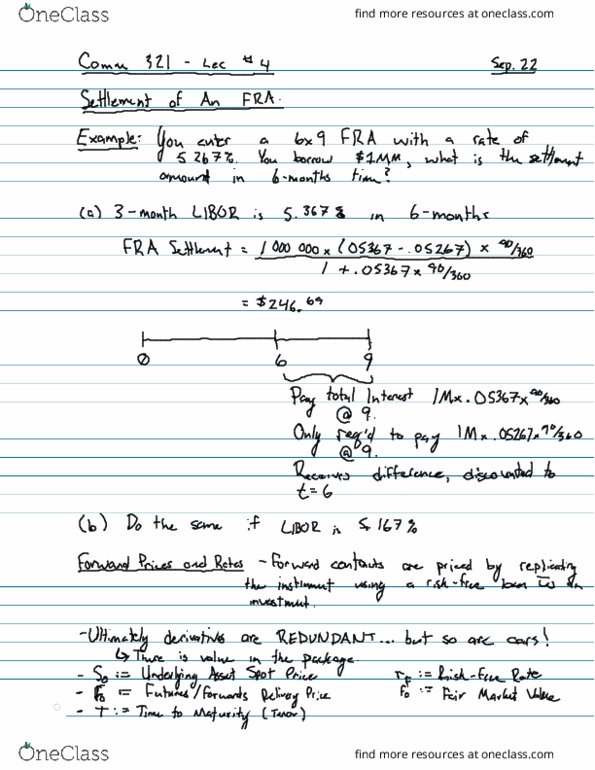 OneClass
find more resources at oneclass.com
Comm 321 - Lec #4 Sep. 22
Settlement of An FRA.
Example: You enter a 6x9 FRA with a rate of
5.267%. You borrow $1MM, what is the settlement
amount in 6-months time?
(a) 3-month LIBOR is 5.367% in 6-months
FRA Settlement = 1 000 000 x (.05367 - .05267) x 90/360
1 + .05367 x 90/360
= $246.69
0 6 9
Pay total Interest 1M x .05367 x 90/360
@ 9.
Only req'd to pay 1M x .05267 x 90/360
@ 9.
Receives difference, discounted to
t=6
(b) Do the same if LIBOR is 5.167%
Forward Prices and Rates - Forward contracts are priced by replicating
the instrument using a risk-free loan an
investment.
- Ultimately derivatives are REDUNDANT... but so are cars!
↳ There is value in the package.
- S₀ := Underlying Asset Spot Price r_f := Risk-Free Rate
- F₀ := Futures/Forwards Delivery Price f₀ := Fair Market Value
- T := Time to Maturity (Tenor)
OneClass
find more resources at oneclass.com